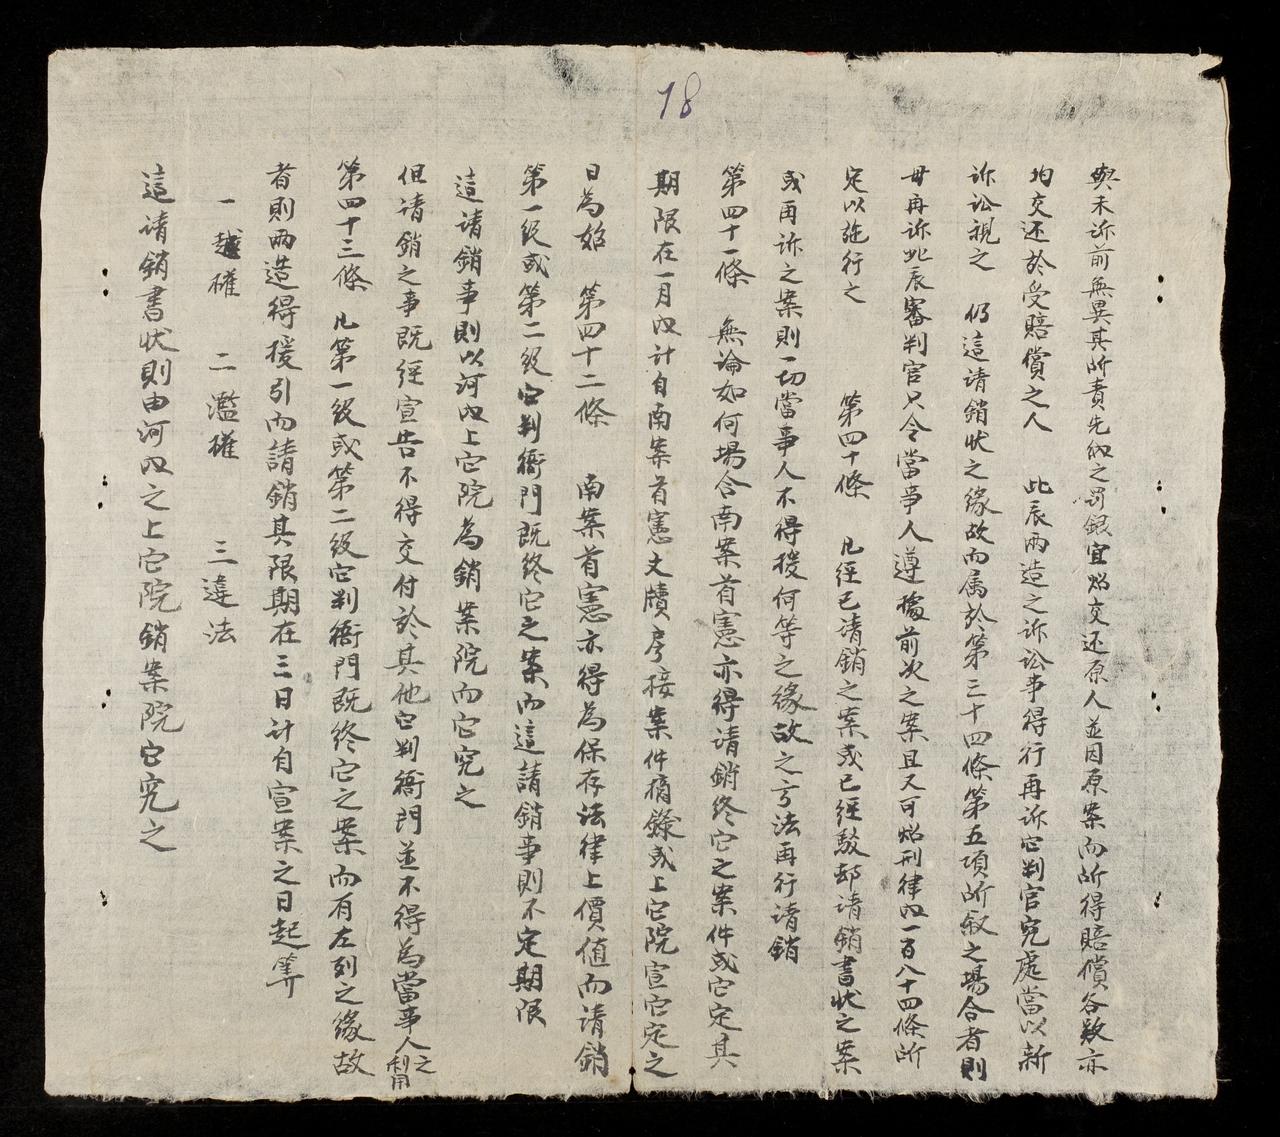 18
與未訴前無異其所責先納之罰銀宜炤交还原人並因原案而所得賠償各款亦
均交还於受賠償之人　此辰兩造之訴訟事得行再訴它判官究處當以新
訴訟視之　仍這请銷狀之缘故而属於第三十四條第五項所叙之場合者則
毋再訴此辰審判官只令當事人遵據前次之案且又可炤刑律内一百八十四條所
定以施行之
第四十條　凡經已请銷之案或已經駁却请銷書状之案
或再訴之案則一切當事人不得援何等之缘故之方法再行请銷
第四十一條　無論如何場合南案首憲亦得请銷終它之案件或它定其
期限在一月内计自南案首憲文牘房接案件摘錄或上它院宣它定之
日為始　第四十二條　南案首憲亦得為保存法律上價值而请銷
第一級或第二級它判衙門既終它之案而這請銷事則不定期限
這请銷事則以河内上它院為銷案院而它究之
但请銷之事既經宣告不得交付於其他它判衙門並不得為當事人之利用
第四十三條　凡第一級或第二級它判衙門既終它之案而有左列之缘故
者則兩造得援引而請銷其限期在三日计自宣案之日起筭
一越權　二濫權　三違法
這请銷書状則由河内之上它院銷案院它究之